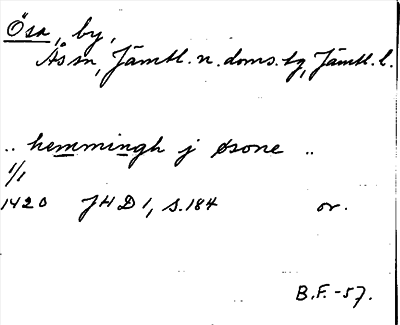 Ösa, by,
Ås sn, Jämtl. n. doms. tg, Jämtl. l.
.. hemmingh j øsone ..
1/1
1420 JHD 1, s. 184 or.
B.F. -57.